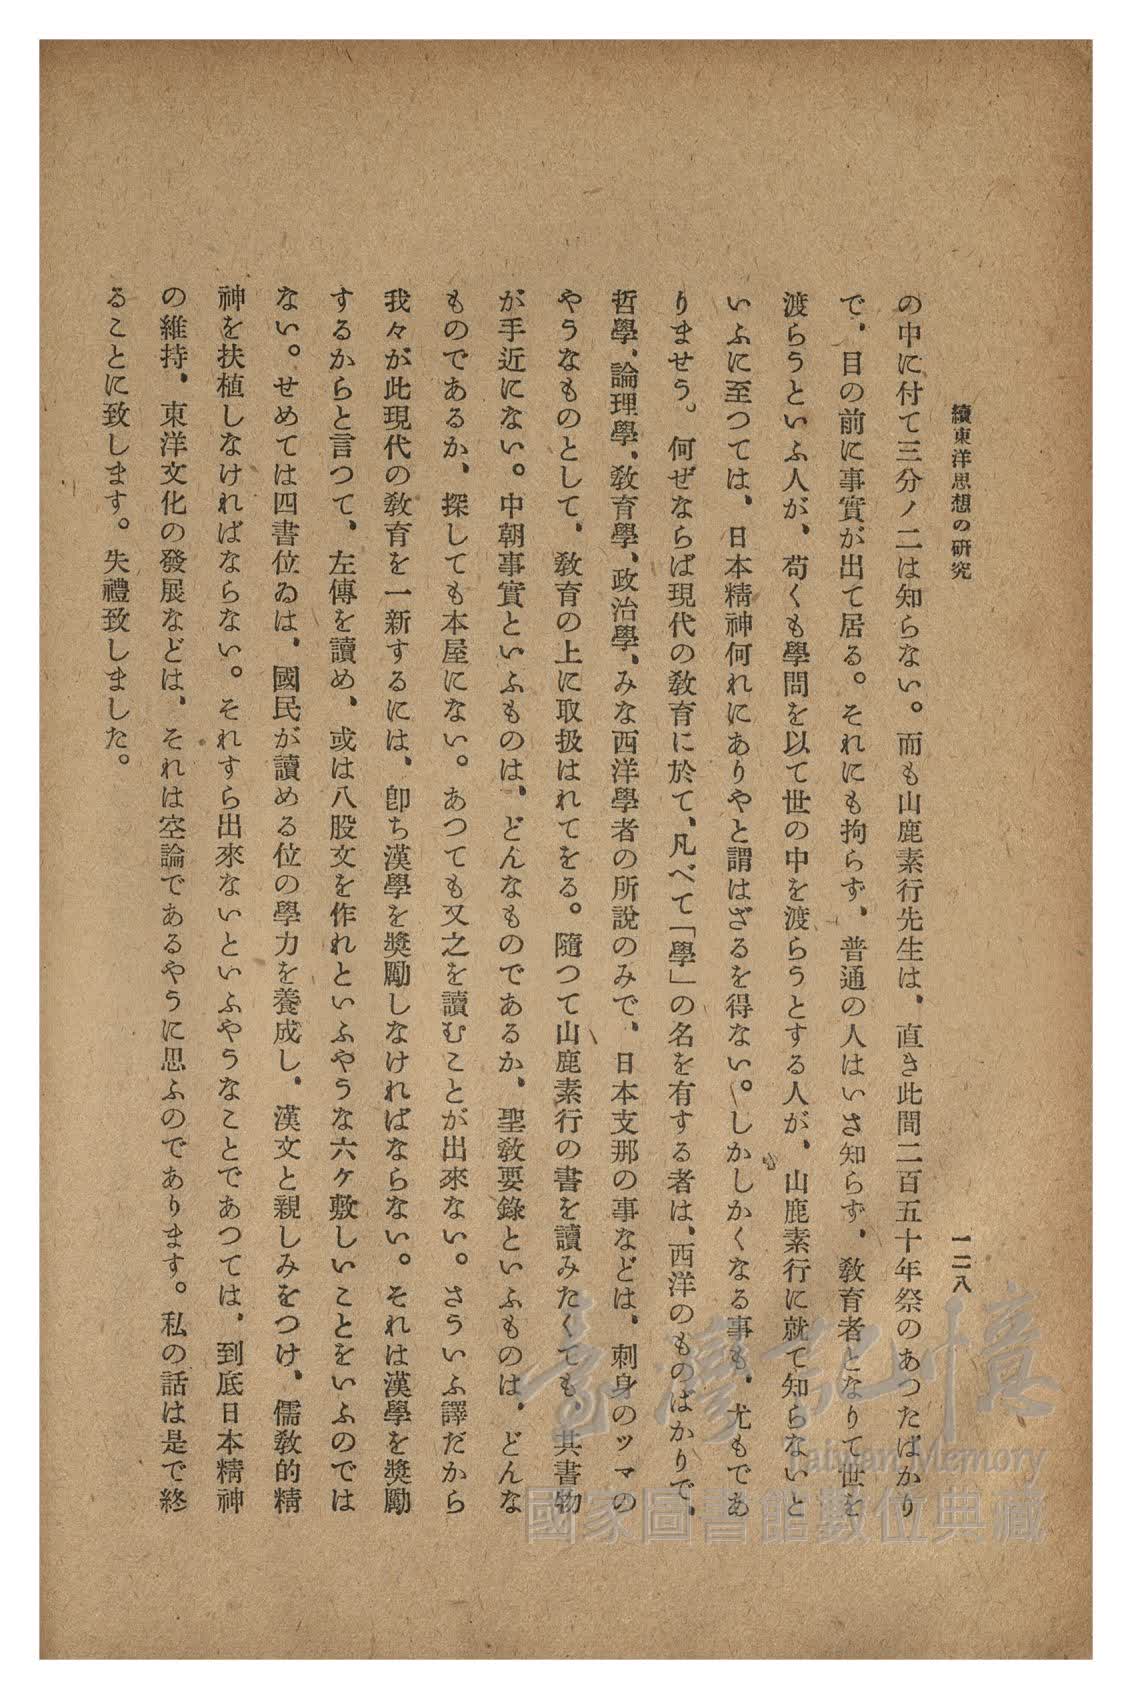 續東洋思想の研究
一二八
の中に付て三分ノ二は知らない。而も山鹿素行先生は、直き此間二百五十年祭のあつたばかり
で、目の前に事實が出て居る。それにも拘らず、普通の人はいさ知らず、敎育者となりて世を
渡らうといふ人が、苟くも學問を以て世の中を渡らうとする人が、山鹿素行に就て知らないと
いふに至つては、日本精神何れにありやと謂はざるを得ない。しかしかくなる事も、尤もであ
りませう。何ぜならば現代の敎育に於て、凡べて「學」の名を有する者は、西洋のものばかりで、
哲學、論理學、敎育學、政治學、みな西洋學者の所說のみで、日本支那の事などは、刺身のツマの
やうなものとして、敎育の上に取扱はれてをる。隨つて山鹿素行の書を讀みたくても、其書物
が手近にない。中朝事實といふものは、どんなものであるか、聖敎要錄といふものは、どんな
ものであるか、探しても本屋にない。あつても又之を讀むことが出來ない。さういふ譯だから
我々が此現代の敎育を一新するには、卽ち漢學を奬勵しなければならない。それは漢學を奬勵
するからと言つて、左傳を讀め、或は八股文を作れといふやうな六ケ敷しいことをいふのでは
ない。せめては四書位ゐは、國民が讀める位の學力を養成し、漢文と親しみをつけ、儒敎的精
神を扶植しなければならない。それすら出來ないといふやうなことであつては、到底日本精神
の維持、東洋文化の發展などは、それは空論であるやうに思ふのであります。私の話は是で終
ることに致します。失禮致しました。
臺灣記憶
Taiwan Memory
國家圖書館數位典藏